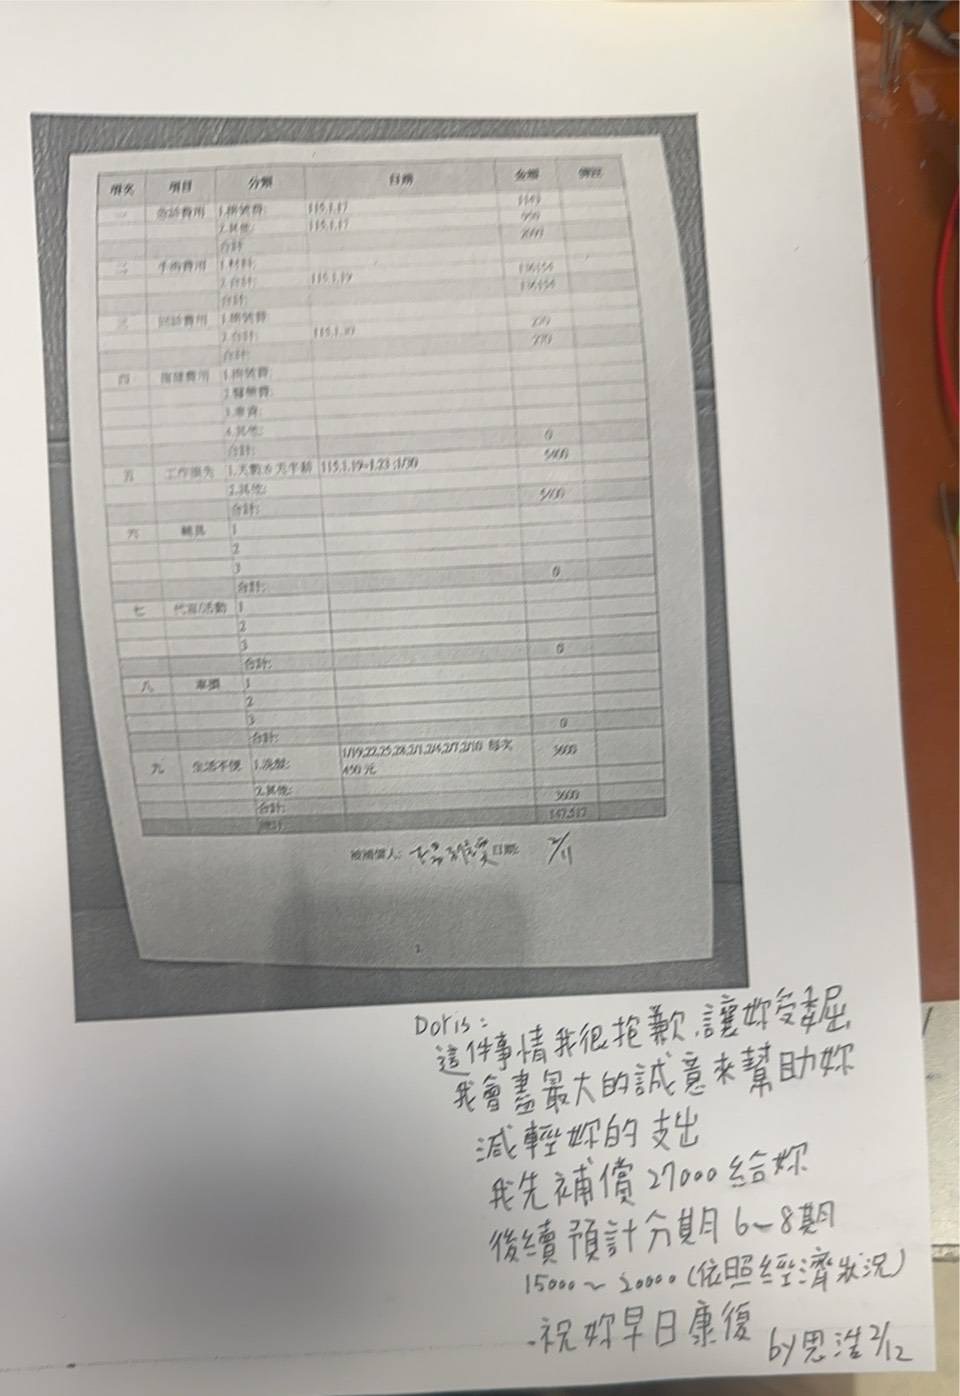 項次 項目 分類 日期 金額 備註
一 急診費用 1.掛號費: 115.1.17
2.其他: 115.1.17
合計
二 手術費用 1.材料:
2.合計: 115.1.19
合計:
三 回診費用 1.掛號費:
2.合計: 115.1.30
合計:
四 復健費用 1.掛號費:
2.醫藥費:
3.車資:
4.其他:
合計: 0
五 工作損失 1.天數 115.1.19~1.23 ;1/30 5400
2.其他:
合計: 5400
六 輔具 1
2
3
合計: 0
七 1
2
3
合計: 0
八 車損 1
2
3
合計: 0
九 生活不便 1.洗髮: 1/19,22,25,28,2/1,2/4,2/7,2/10 每次 3600
450元
2.其他:
合計: 3600
總計 147,517
被補償人: 日期: 2/11
1
Doris:
這件事情我很抱歉,讓妳受委屈
我會盡最大的誠意來幫助妳
減輕妳的支出
我先補償27000給妳
後續預計分期月6~8期
15000~20000(依照經濟狀況)
祝妳早日康復
by思浩2/12